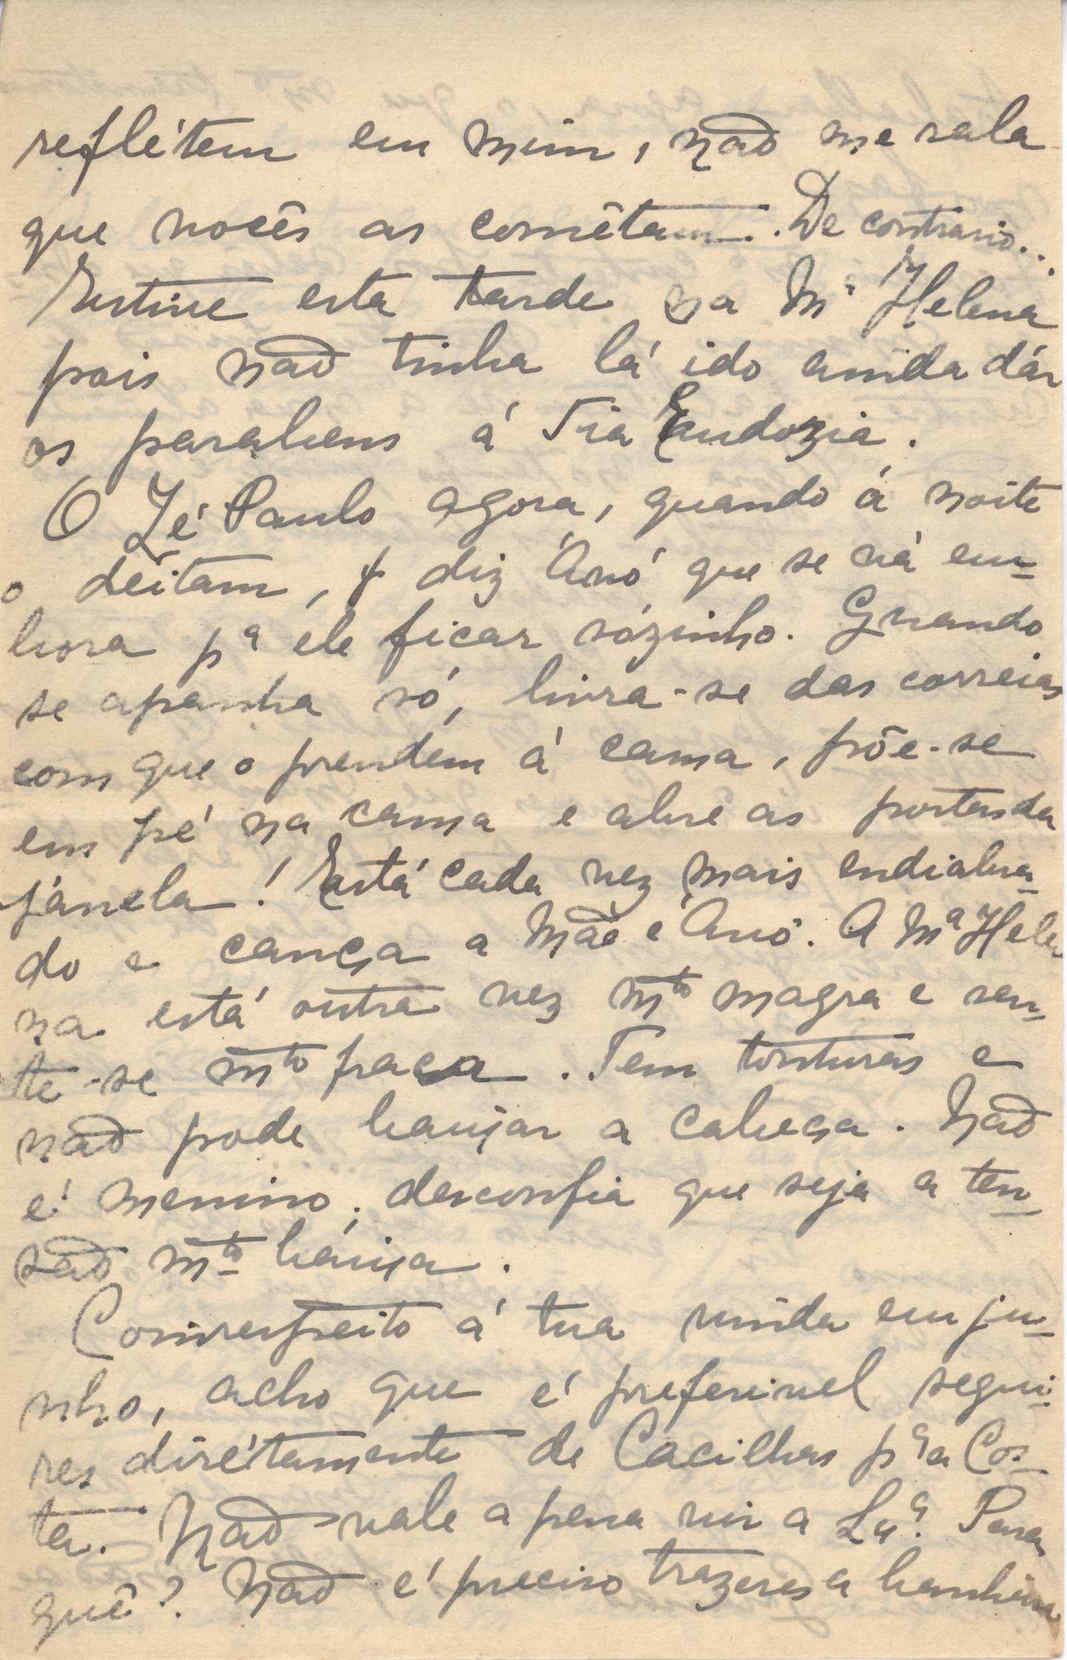 reflétem em mim, não me rala
que vocês as cométam. De contrario...
Estive esta tarde na Mª Helena
pois não tinha lá ido ainda dár
os parabens á Tia Eudozia.
O Zé Paulo agora, quando á noite
o deitam, diz Ávó que se vá em-
bora pª ele ficar sózinho. Quando
se apanha só, livra-se das correias
com que o prendem á cama, põe-se
em pé na cama e abre as portas da
jánela! Está cada vez mais endiabra-
do e cança a Mãe e Ávó. A Mª Hele
na está outra vez mto magra e sen-
te-se mto fraca. Tem tonturas e
não pode baixar a cabeça. Não
é menino; desconfia que seja a ten-
são mto baixa.
Com respeito á tua vinda em ju-
nho, acho que é preferivel segui-
res dirétamente de Cacilhas pª a Cos-
ta. Não vale a pena vir a Lxª. Para
quê? Não é preciso trazeres a banheira